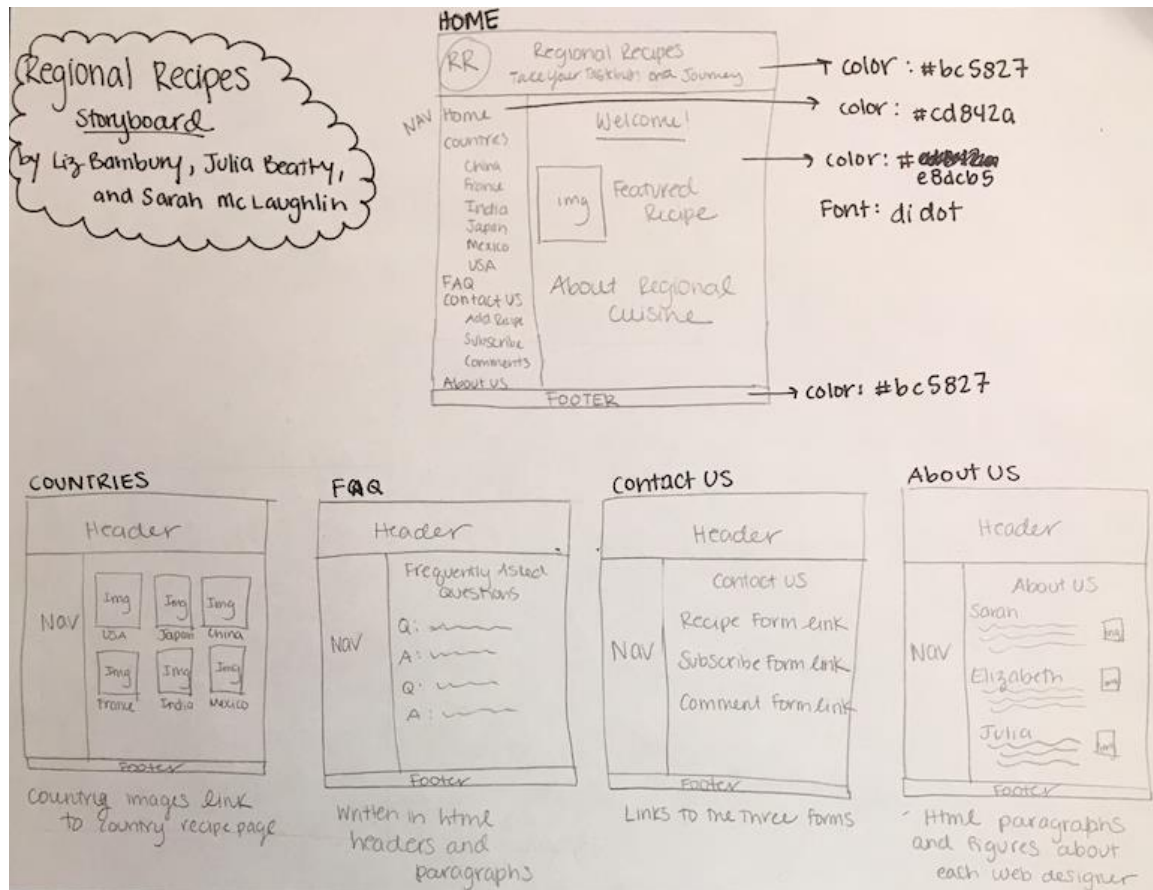 Regional Recipes
Storyboard
by Liz Bambury, Julia Beatty,
and Sarah McLaughlin
HOME
RR
Regional Recipes
Take Your Tastebuds on a Journey
NAV
Home
Countries
China
France
India
Japan
Mexico
USA
FAQ
Contact US
Add Recipe
Subscribe
Comments
About US
Welcome!
img
Featured
Recipe
About Regional
Cuisine
FOOTER
color: #bc5827
color: #cd842a
color: #
e8dcb5
Font: didot
color: #bc5827
COUNTRIES
Header
Nav
Img
USA
Img
Japan
Img
China
Img
France
Img
India
Img
Mexico
Footer
Country images link
to country recipe page
FAQ
Header
Nav
Frequently Asked
Questions
Q:
A:
Q:
A:
Footer
Written in html
headers and
paragraphs
Contact US
Header
Nav
Contact US
Recipe Form link
Subscribe Form link
Comment Form link
Footer
Links to the three forms
About US
Header
Nav
About US
Sarah
img
Elizabeth
img
Julia
img
Footer
Html paragraphs
and figures about
each web designer